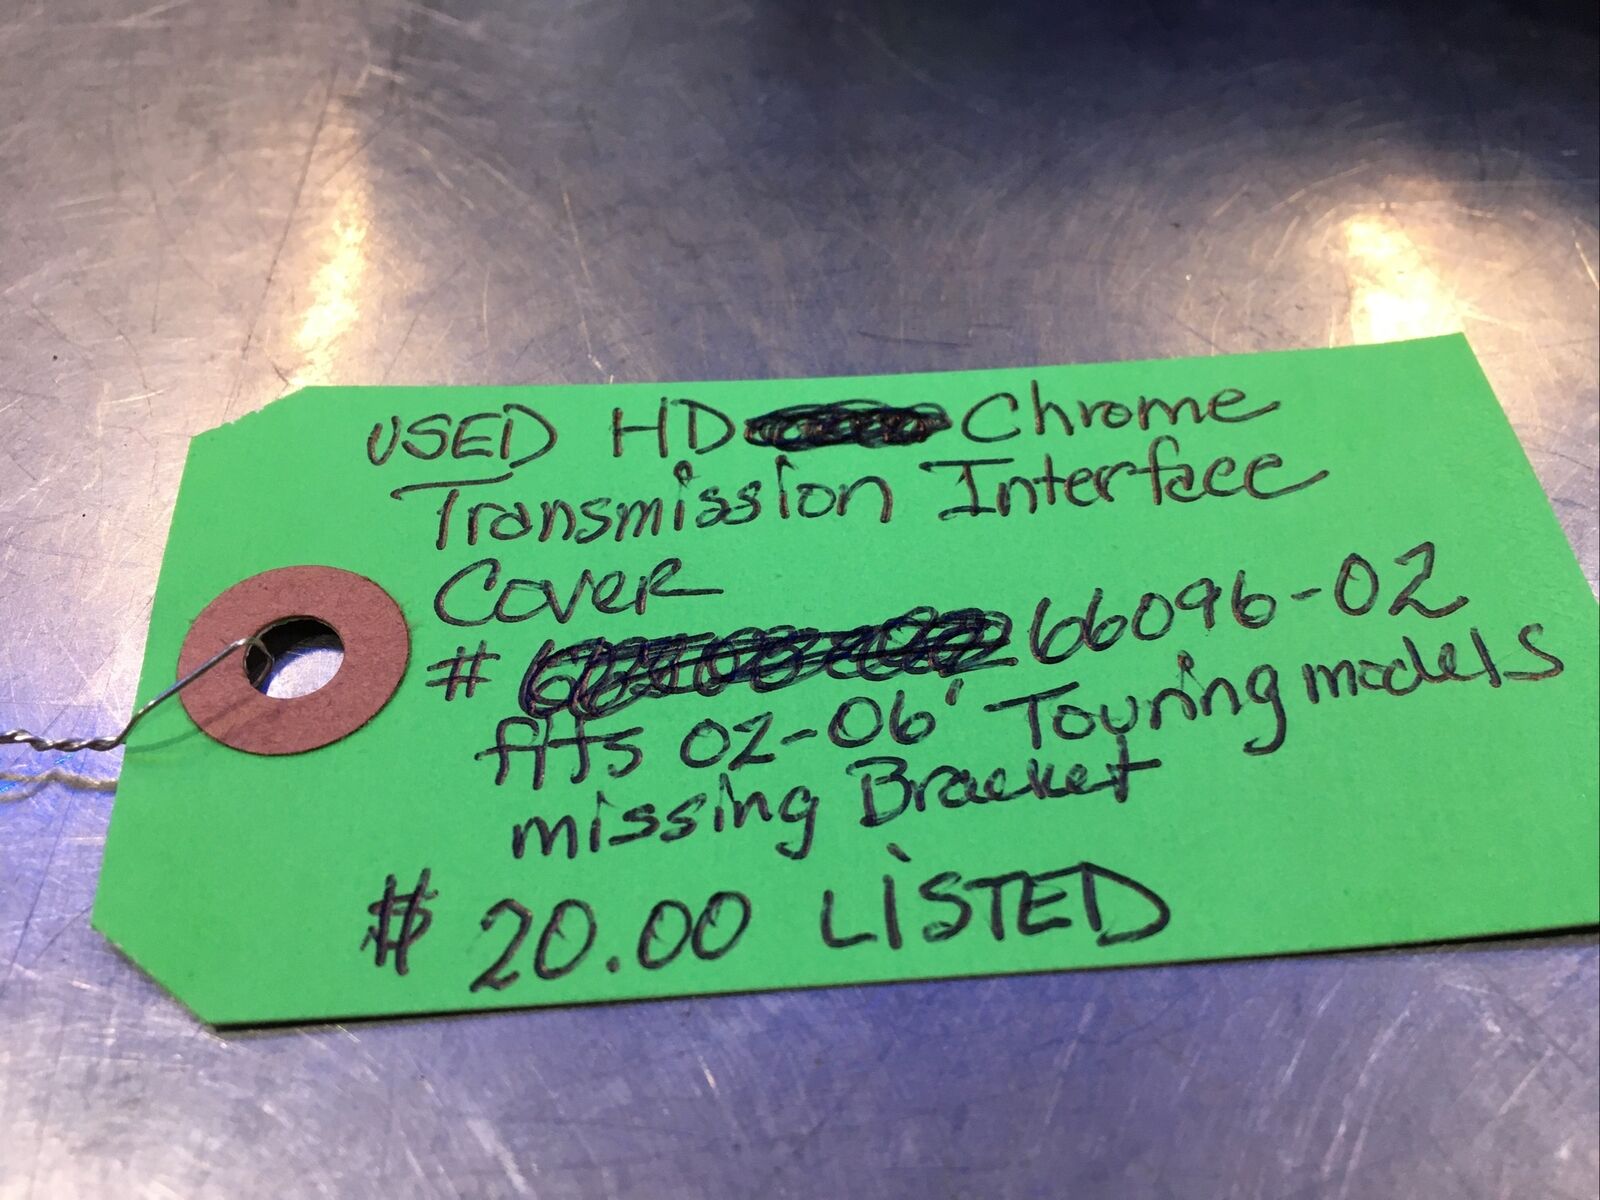 USED HD Chrome
Transmission Interface
Cover
# 66096-02
fits 02-06' Touring models
missing Bracket
$ 20.00 LiSTED